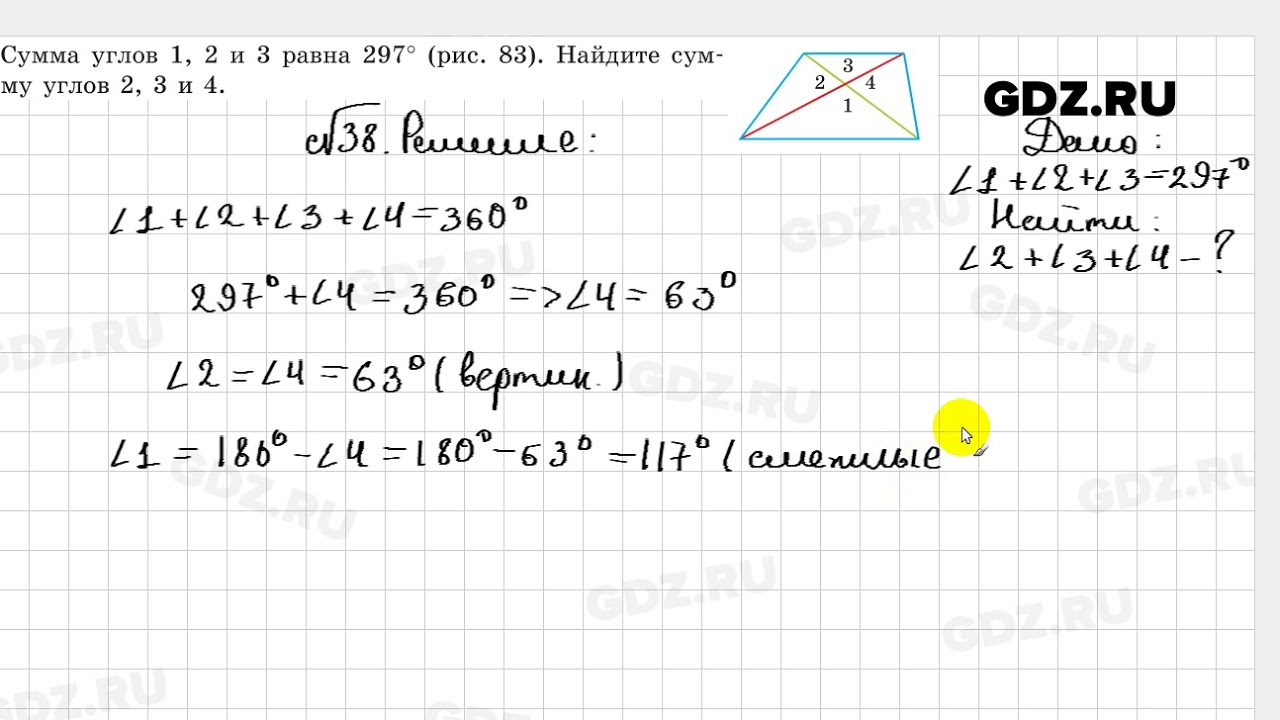 Сумма углов 1, 2 и 3 равна 297° (рис. 83). Найдите сум-
му углов 2, 3 и 4.
3
2 4
1
GDZ.RU
№38. Решение:
Дано:
∠1+∠2+∠3=297°
Найти:
∠2+∠3+∠4-?
∠1+∠2+∠3+∠4=360°
297°+∠4=360°=>∠4=63°
∠2=∠4=63° (вертик.)
∠1=180°-∠4=180°-63°=117° (смежные
GDZ.RU
GDZ.RU
GDZ.RU
GDZ.RU
GDZ.RU
GDZ.RU
GDZ.RU
GDZ.RU
GDZ.RU
GDZ.RU
GDZ.RU